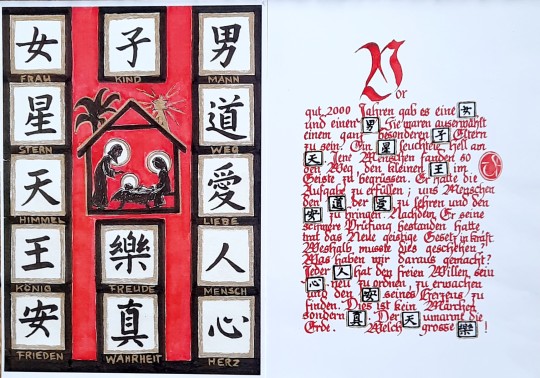 女 子 男
FRAU KIND MANN
星 道
STERN WEG
天 愛
HIMMEL LIEBE
王 樂 人
KÖNIG FREUDE MENSCH
安 真 心
FRIEDEN WAHRHEIT HERZ
Vor
gut 2000 Jahren gab es eine 女
und einen 男. Sie waren auserwählt
einem ganz besonderen 子 Eltern
zu sein. Ein 星 leuchtete hell am
天. Jene Menschen fanden so
den Weg den kleinen 王 im
Geiste zu begrüssen. Er hatte die
Aufgabe zu erfüllen; uns Menschen
den 道 der 愛 zu lehren und den
安 zu bringen. Nachdem Er seine
schwere Prüfung bestanden hatte
trat das Neue geistige Gesetz in kraft.
Weshalb musste dies geschehen?
Was haben wir daraus gemacht?
Jeder 人 hat den freien Willen sein
心 neu zu ordnen, zu erwachen
und den 安 seines Herzens zu
finden. Dies ist kein Märchen
sondern 真. Der 天 umarmt die
Erde. Welch grosse 樂!